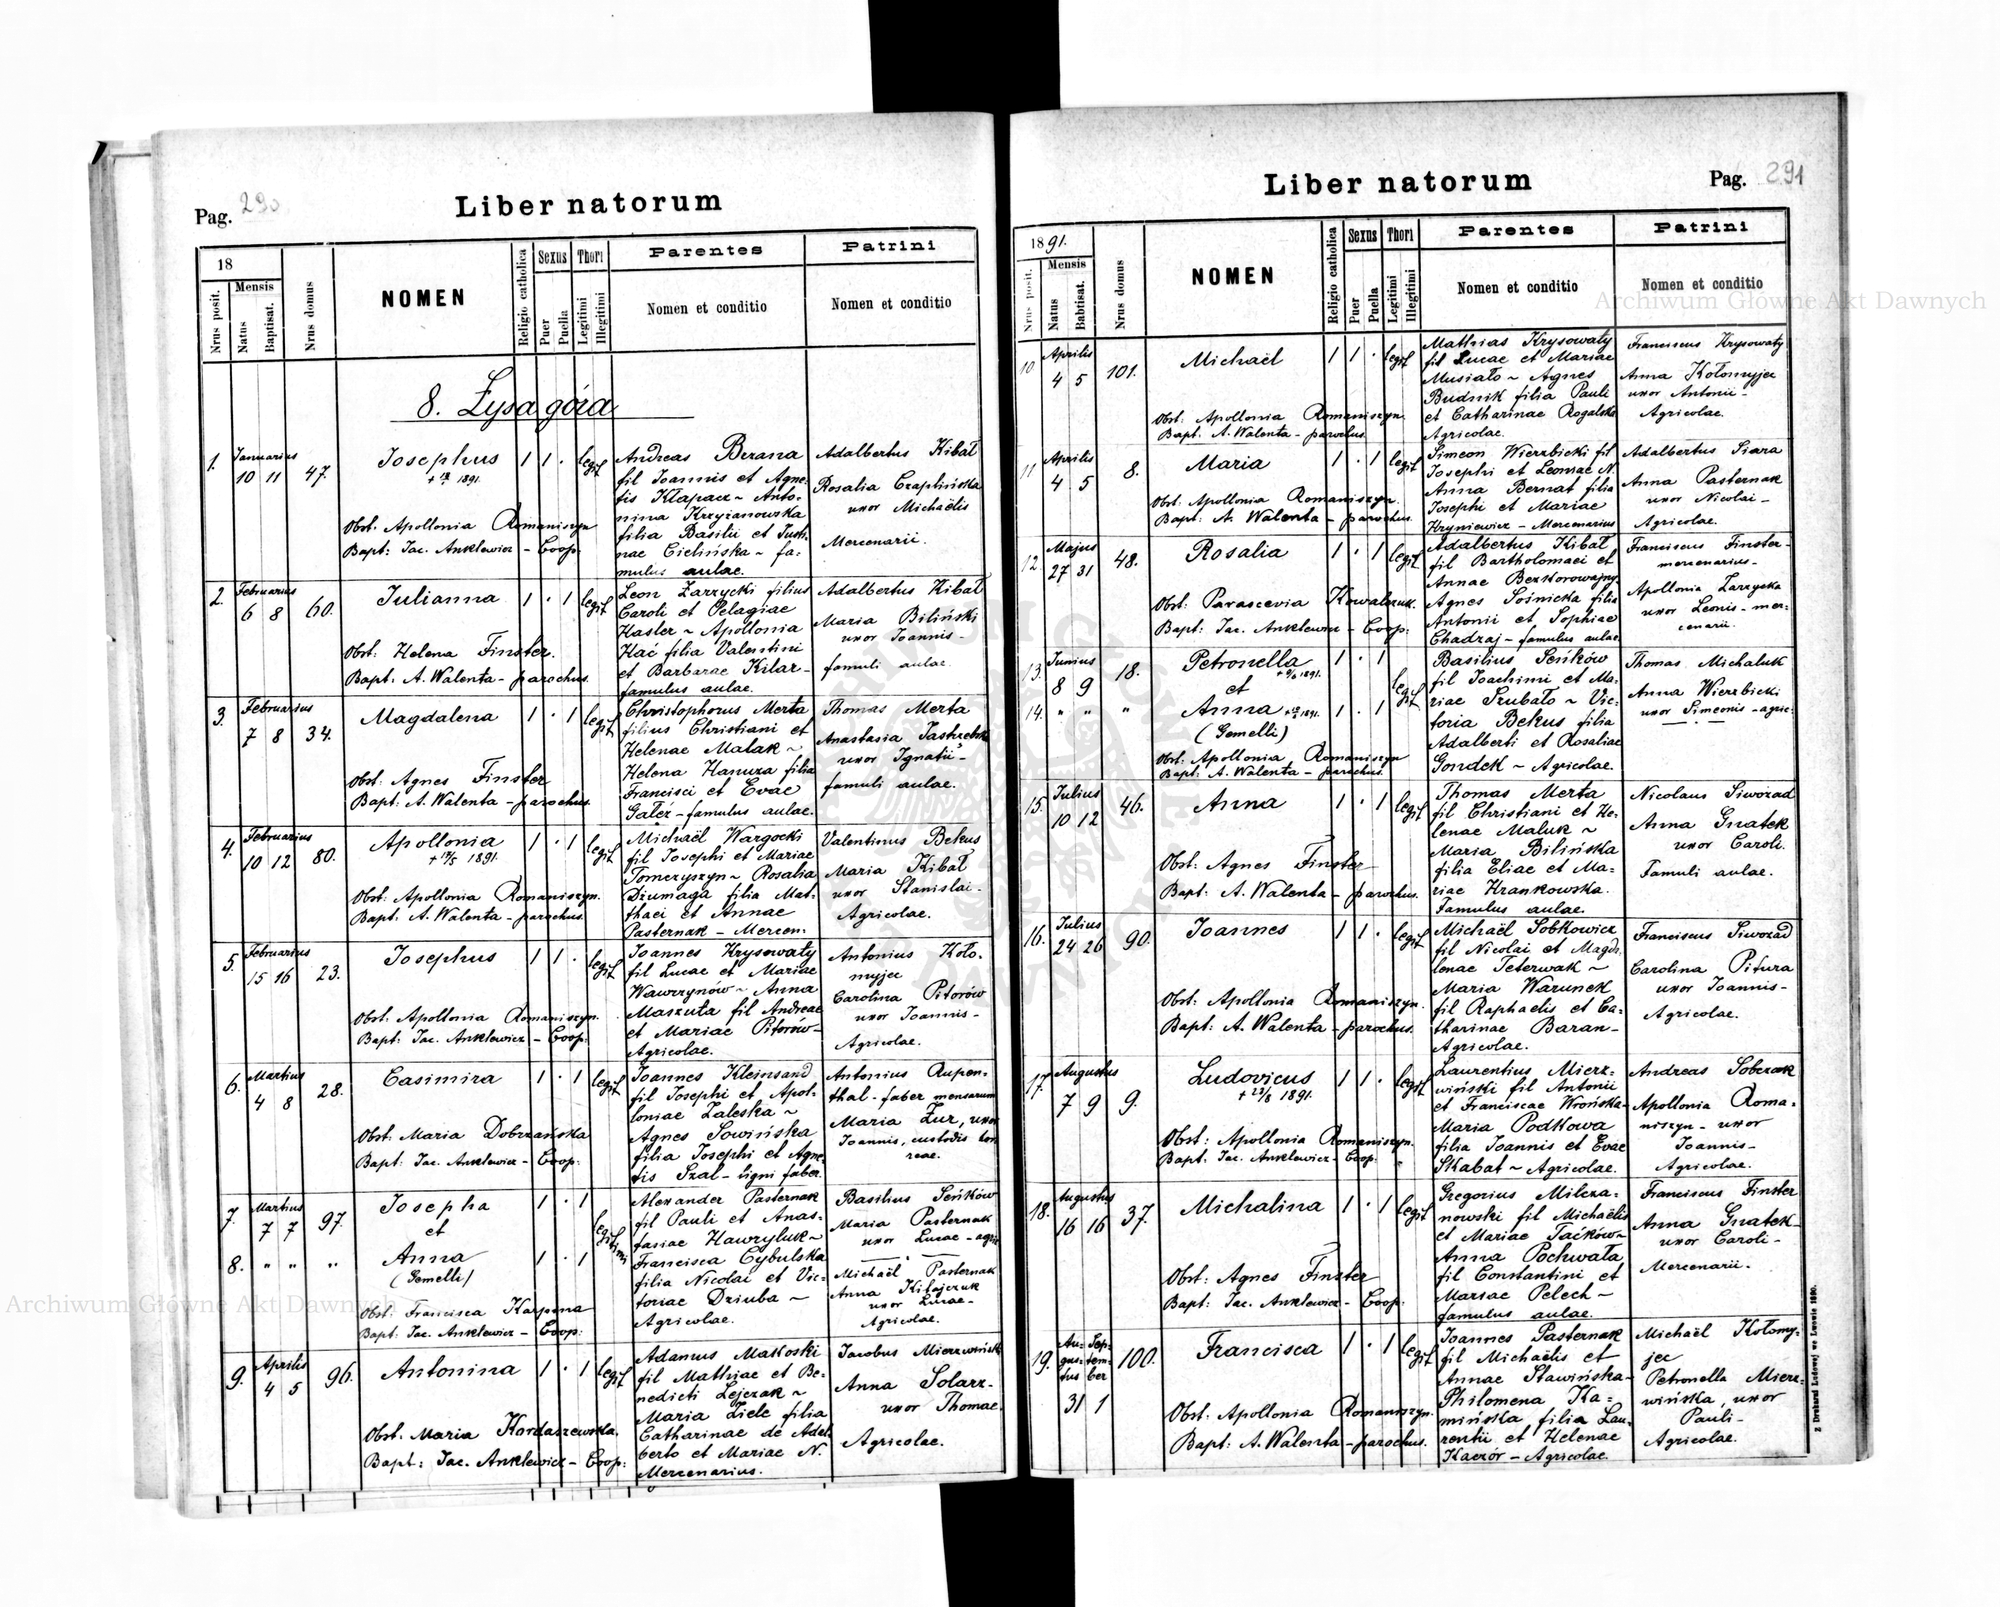 Pag. 290
Liber natorum
18
Nrus posit.
Mensis
Natus
Baptisat.
Nrus domus
NOMEN
Religio catholica
Sexus
Puer
Puella
Thori
Legitimi
Illegitimi
Parentes
Nomen et conditio
Patrini
Nomen et conditio
8. Łysa góra
1.
Januarius
10 11
47.
Josephus
1 1 ·
legit
Obst: Apollonia Romaniszyn
Bapt: Jac. Anklewicz - Coop.
Andreas Berana
fil Joannis et Agne-
tis Kłapacz ~ Anto-
nina Krzyżanowska
filia Basilii et Justi-
nae Cielińska ~ fa-
mulus aulae.
Adalbertus Kibał
Rosalia Czaplińska
uxor Michaëlis
Mercenarii.
2.
Februarius
6 8
60.
Julianna
1 · 1
legit
Obst: Helena Finster.
Bapt: A. Walenta - parochus.
Leon Zarzycki filius
Caroli et Pelagiae
Haster ~ Apollonia
Kać filia Valentini
et Barbarae Kilar-
famulus aulae.
Adalbertus Kibał
Maria Biliński
uxor Joannis -
famuli aulae.
3.
Februarius
7 8
34.
Magdalena
1 · 1
legit
Obst: Agnes Finster
Bapt: A. Walenta - parochus.
Christophorus Merta
filius Christiani et
Helenae Malak ~
Helena Hanuza filia
Francisci et Evae
Galéz - famulus aulae.
Thomas Merta
Anastasia
uxor Ignatii -
famuli aulae.
4.
Februarius
10 12
80.
Apollonia
1891.
1 · 1
legit
Obst: Apollonia Romaniszyn.
Bapt: A. Walenta - parochus.
Michaël Wargocki
fil Josephi et Mariae
Tomczyszyn ~ Rosalia
Dżumaga filia Mat-
thaei et Annae
Pasternak - Mercen:
Valentinus Bekus
Maria Kibał
uxor Stanislai -
Agricolae.
5.
Februarius
15 16
23.
Josephus
1 1 ·
legit
Obst: Apollonia Romaniszyn.
Bapt: Jac. Anklewicz - Coop:
Joannes Krysowaty
fil Lucae et Mariae
Wawrzynów ~ Anna
Maszuta fil Andreae
et Mariae Pitorów -
Agricolae.
Antonius Koło-
myjec
Carolina Pitorów
uxor Joannis -
Agricolae.
6.
Martius
4 8
28.
Casimira
1 · 1
legit
Obst: Maria Dobrzańska
Bapt: Jac. Anklewicz - Coop:
Joannes Kleinsand
fil Josephi et Apol-
loniae Zaleska ~
Agnes Sowińska
filia Josephi et Agne-
tis Szal - ligni faber.
Antonius Rupen-
thal - faber mensarum
Maria Żur, uxor
Joannis, custodis hor
reae.
7.
Martius
7 7
97.
Josepha
et
1 · 1
8.
" "
"
Anna
(Gemelli)
1 · 1
legitimi
Obst: Francisca Karpina
Bapt: Jac. Anklewicz - Coop:
Alexander Pasternak
fil Pauli et Anas-
tasiae Hawryluk ~
Francisca Cybulska
filia Nicolai et Vic-
toriae Dziuba ~
Agricolae.
Basilius Seńków
Maria Pasternak
uxor Lucae - agric
Michaël Pasternak
Anna Kilajczuk
uxor Lucae -
Agricolae.
9.
Aprilis
4 5
96.
Antonina
1 · 1
legit
Obst: Maria Kordaszewska.
Bapt: Jac. Anklewicz - Coop:
Adamus Makoski
fil Mathiae et Be-
nedicti Lejczak ~
Maria Ziele filia
Catharinae de Adal
berto et Mariae N.
Mercenarius.
Jacobus Mierzwiński
Anna Solarz-
uxor Thomae.
Agricolae.
Liber natorum
Pag. 291
1891.
Nrus posit.
Mensis
Natus
Babtisat.
Nrus domus
NOMEN
Religio catholica
Sexus
Puer
Puella
Thori
Legitimi
Illegitimi
Parentes
Nomen et conditio
Patrini
Nomen et conditio
10
Aprilis
4 5
101.
Michaël
1 1 ·
legit
Obst: Apollonia Romaniszyn.
Bapt: A. Walenta - parochus.
Mathias Krysowaty
fil Lucae et Mariae
Musiało ~ Agnes
Budnik filia Pauli
et Catharinae Rogalska
Agricolae.
Franciscus Krysowaty
Anna Kołomyjec
uxor Antonii -
Agricolae.
11
Aprilis
4 5
8.
Maria
1 · 1
legit
Obst: Apollonia Romaniszyn.
Bapt: A. Walenta - parochus.
Simeon Wierzbicki fil
Josephi et Leonae N.
Anna Bernat filia
Josephi et Mariae
Kryniewicz - Mercenarius
Adalbertus Siara
Anna Pasternak
uxor Nicolai -
Agricolae.
12.
Majus
27 31
48.
Rosalia
1 · 1
legit
Obst: Parascevia Kowalczuk.
Bapt: Jac. Anklewicz - Coop:
Adalbertus Kibał
fil Bartholomaei et
Annae Bezkorowajny
Agnes Sośnicka filia
Antonii et Sophiae
Chadzaj - famulus aulae
Franciscus Finster -
mercenarius -
Apollonia Zarzycka
uxor Leonis - mer-
cenarii.
13.
Junius
8 9
18.
Petronella
1891.
et
1 · 1
14.
" "
"
Anna
1891.
(Gemelli)
1 · 1
legit
Obst: Apollonia Romaniszyn
Bapt: A. Walenta - parochus.
Basilius Seńków
fil Joachimi et Ma-
riae Trubało ~ Vic-
toria Bekus filia
Adalberti et Rosaliae
Gondek ~ Agricolae.
Thomas Michaluk
Anna Wierzbicki
uxor Simeonis - agric:
15.
Julius
10 12
46.
Anna
1 · 1
legit
Obst: Agnes Finster
Bapt: A. Walenta - parochus.
Thomas Merta
fil Christiani et He-
lenae Maluk ~
Maria Bilińska
filia Eliae et Ma-
riae Krankowska.
Famulus aulae.
Nicolaus Siworad
Anna Gnatek
uxor Caroli.
Famuli aulae.
16.
Julius
24 26
90.
Joannes
1 1 ·
legit
Obst: Apollonia Romaniszyn.
Bapt: A. Walenta - parochus.
Michaël Sobkowicz
fil Nicolai et Magda
lenae Teterwak ~
Maria Warunek
fil Raphaelis et Ca-
tharinae Baran -
Agricolae.
Franciscus Siworad
Carolina Pitura
uxor Joannis -
Agricolae.
17.
Augustus
7 9
9.
Ludovicus
+ 23/8 1891.
1 1 ·
legit
Obst: Apollonia Romaniszyn.
Bapt: Jac. Anklewicz - Coop:
Laurentius Mierz-
wiński fil Antonii
et Franciscae Wrońska-
Maria Podkowa
filia Joannis et Evae
Skabat ~ Agricolae.
Andreas Sobczak
Apollonia Roma-
niszyn - uxor
Joannis -
Agricolae.
18.
Augustus
16 16
37.
Michalina
1 · 1
legit
Obst: Agnes Finster
Bapt: Jac. Anklewicz - Coop:
Gregorius Milcza-
nowski fil Michaëlis
et Mariae Faćków ~
Anna Pochwała
fil Constantini et
Mariae Pelech ~
famulus aulae.
Franciscus Finster
Anna Gnatek -
uxor Caroli -
Mercenarii.
19.
Au- Sep-
gus- tem-
tus ber
31 1
100.
Francisca
1 · 1
legit
Obst: Apollonia Romaniszyn.
Bapt: A. Walenta - parochus.
Joannes Pasternak
fil Michaëlis et
Annae Stawińska-
Philomena Ka-
mińska filia Lau-
rentii et Helenae
Kaczór - Agricolae.
Michaël Kołomy-
jec
Petronella Mierz-
wińska, uxor
Pauli -
Agricolae.
Z Drukarni Ludowej we Lwowie 1890.
Archiwum Główne Akt Dawnych
Archiwum Główne Akt Dawnych